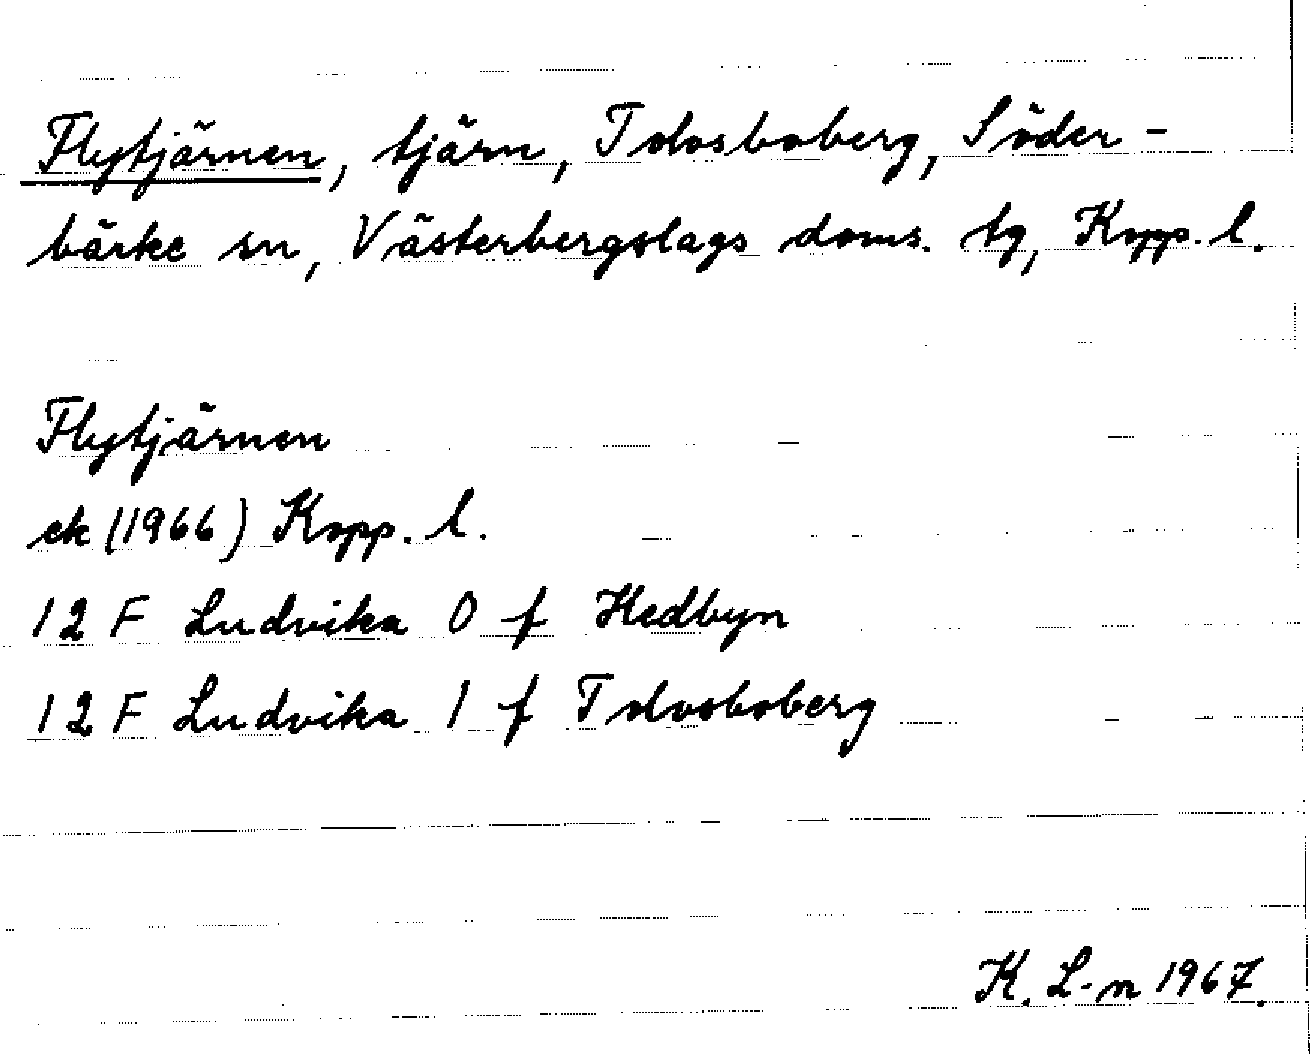 Flytjärnen, tjärn, Tolvsboberg, Söder-
bärke sn, Västerbergslags doms. tg, Kopp. l.
Flytjärnen
ek (1966) Kopp. l.
12 F Ludvika 0 f Hedbyn
12 F Ludvika 1 f Tolvsboberg
K. L-n 1967.